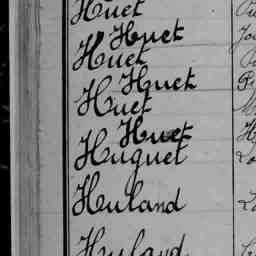 Huet
Huet
Huet
Huet
Huet
Huet
Huguet
Huland
Huland